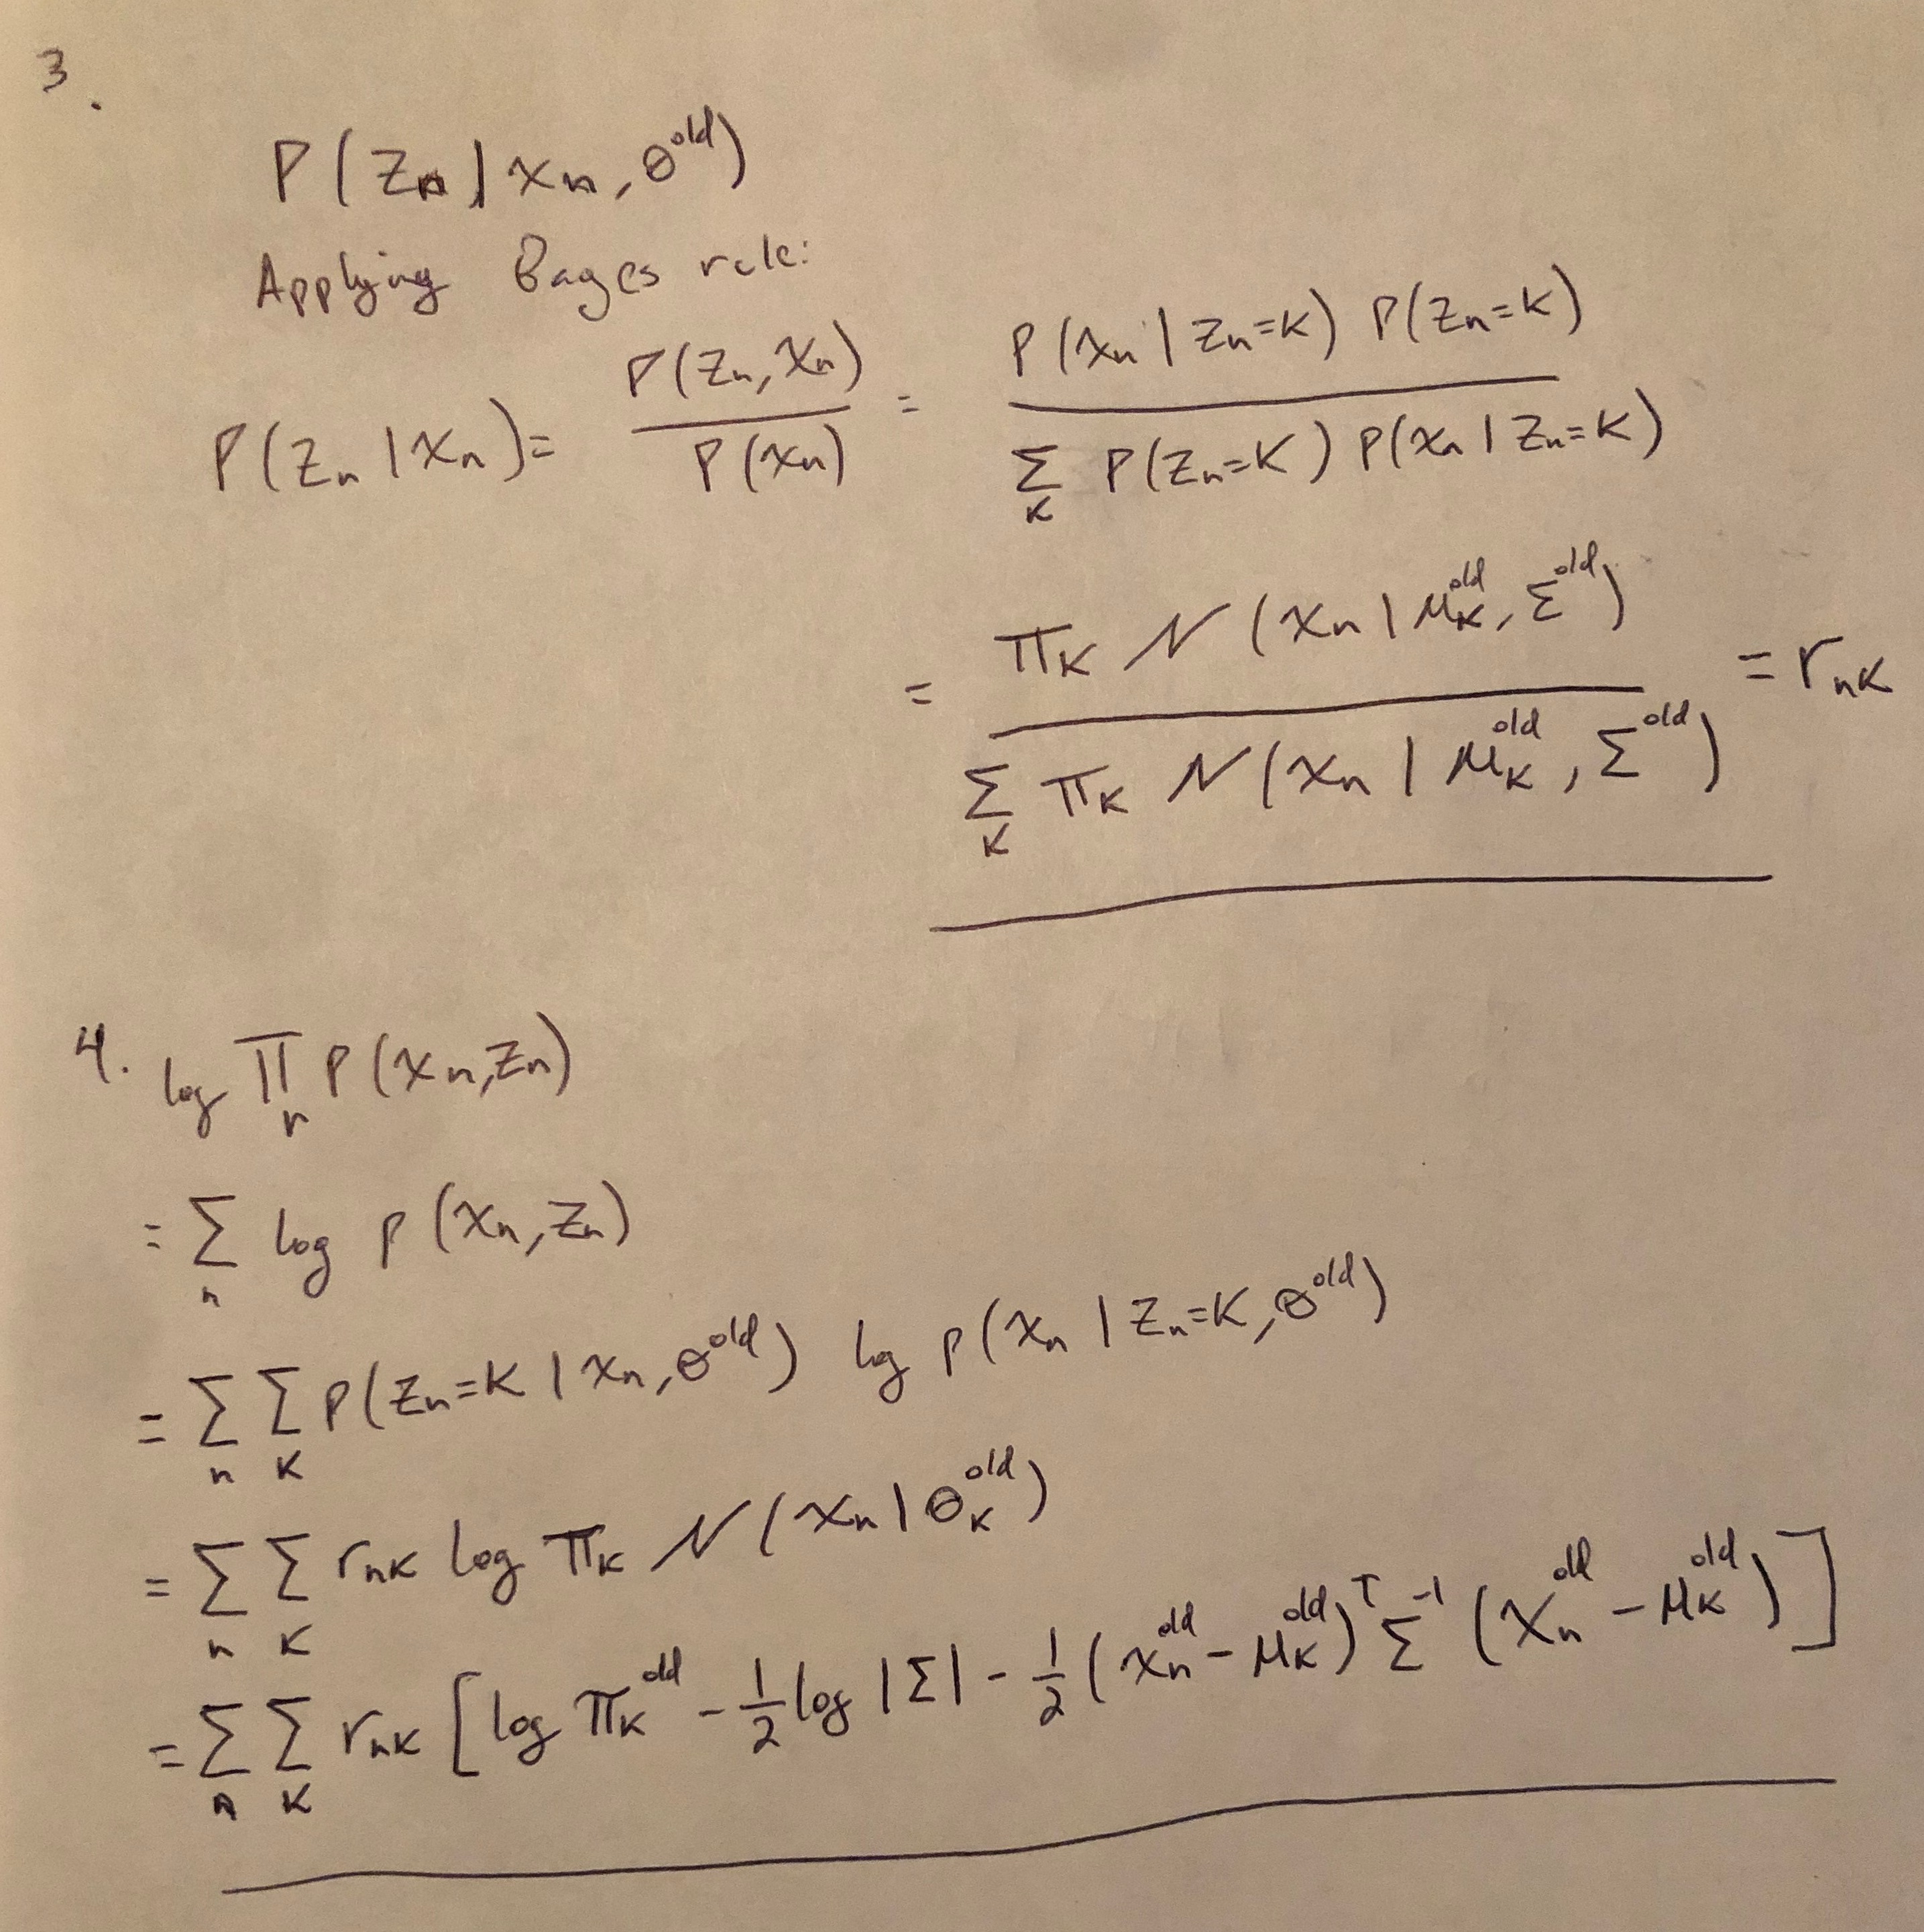 3.
P(Zₙ | xₙ, θ^old)
Applying Bayes rule:
P(Zₙ | Xₙ) = P(Zₙ, Xₙ) / P(Xₙ) = P(xₙ | Zₙ=K) P(Zₙ=K) / Σ_K P(Zₙ=K) P(xₙ | Zₙ=K)
= π_K N(xₙ | μ_K^old, Σ^old) / Σ_K π_K N(xₙ | μ_K^old, Σ^old) = r_nK
4. log Π_n P(xₙ, Zₙ)
= Σ_n log p(xₙ, Zₙ)
= Σ_n Σ_K P(Zₙ=K | xₙ, θ^old) log p(xₙ | Zₙ=K, θ^old)
= Σ_n Σ_K r_nK log π_K N(xₙ | θ_K^old)
= Σ_n Σ_K r_nK [log π_K^old - 1/2 log |Σ| - 1/2 (xₙ^old - μ_K^old)^T Σ^-1 (xₙ^old - μ_K^old)]